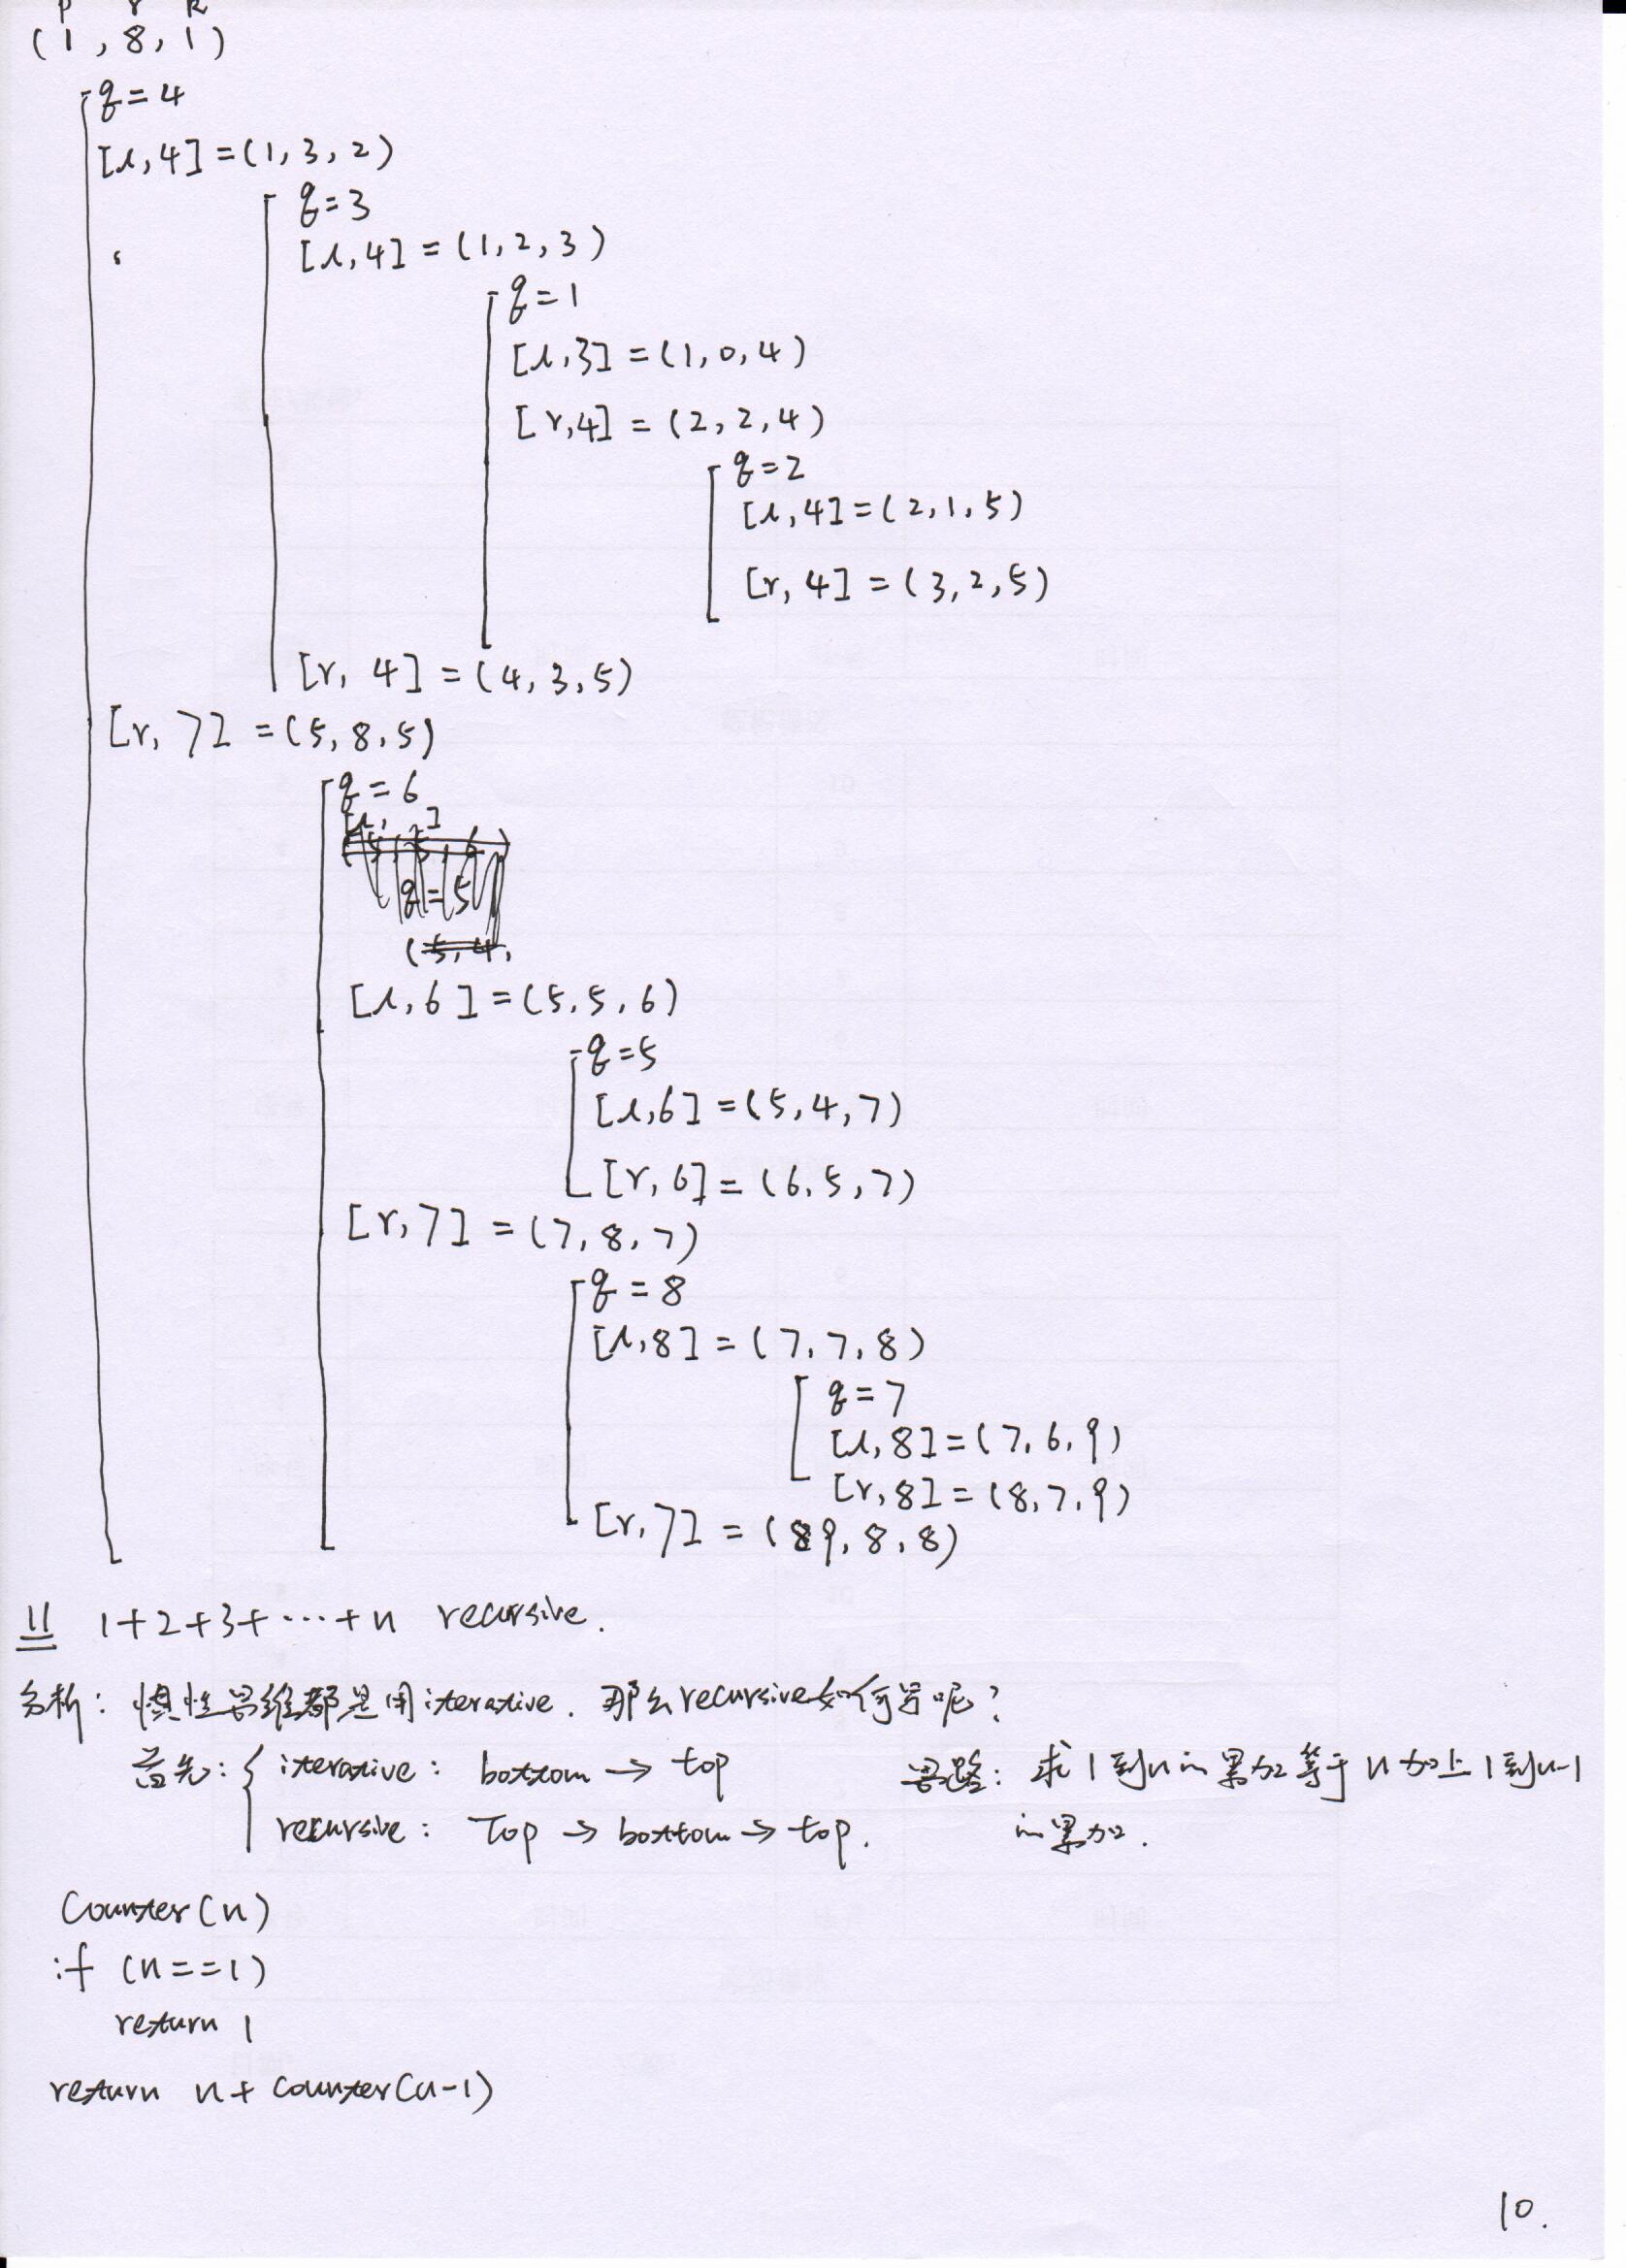 p r k
(1, 8, 1)
q=4
[l,4]=(1,3,2)
q=3
[l,4]=(1,2,3)
q=1
[l,3]=(1,0,4)
[r,4]=(2,2,4)
q=2
[l,4]=(2,1,5)
[r,4]=(3,2,5)
[r,4]=(4,3,5)
[r,7]=(5,8,5)
q=6
[l,6]=(5,5,6)
q=5
[l,6]=(5,4,7)
[r,6]=(6,5,7)
[r,7]=(7,8,7)
q=8
[l,8]=(7,7,8)
q=7
[l,8]=(7,6,9)
[r,8]=(8,7,9)
[r,7]=(9,8,8)
11 1+2+3+⋯+n recursive.
分析: 惯性思维都是用iterative. 那么recursive如何写呢?
首先: { iterative: bottom → top 思路: 求1到n的累加等于n加上1到n-1
recursive: Top → bottom → top. 的累加.
Counter(n)
if (n==1)
return 1
return n+counter(n-1)
10.